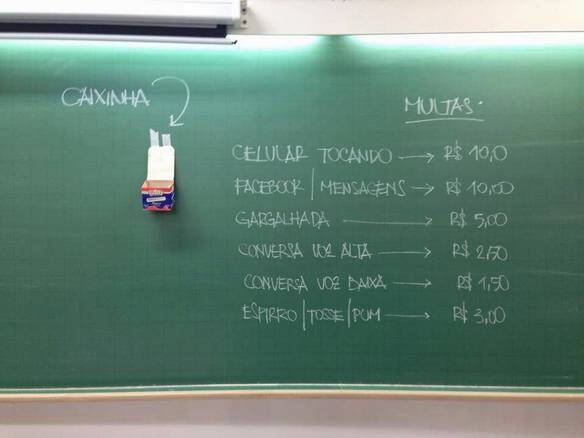 CAIXINHA
MULTAS.
CELULAR TOCANDO → R$ 10,0
FACEBOOK | MENSAGENS → R$ 10,00
GARGALHADA → R$ 5,00
CONVERSA VOZ ALTA → R$ 2,50
CONVERSA VOZ BAIXA → R$ 1,50
ESPIRRO | TOSSE | PUM → R$ 3,00